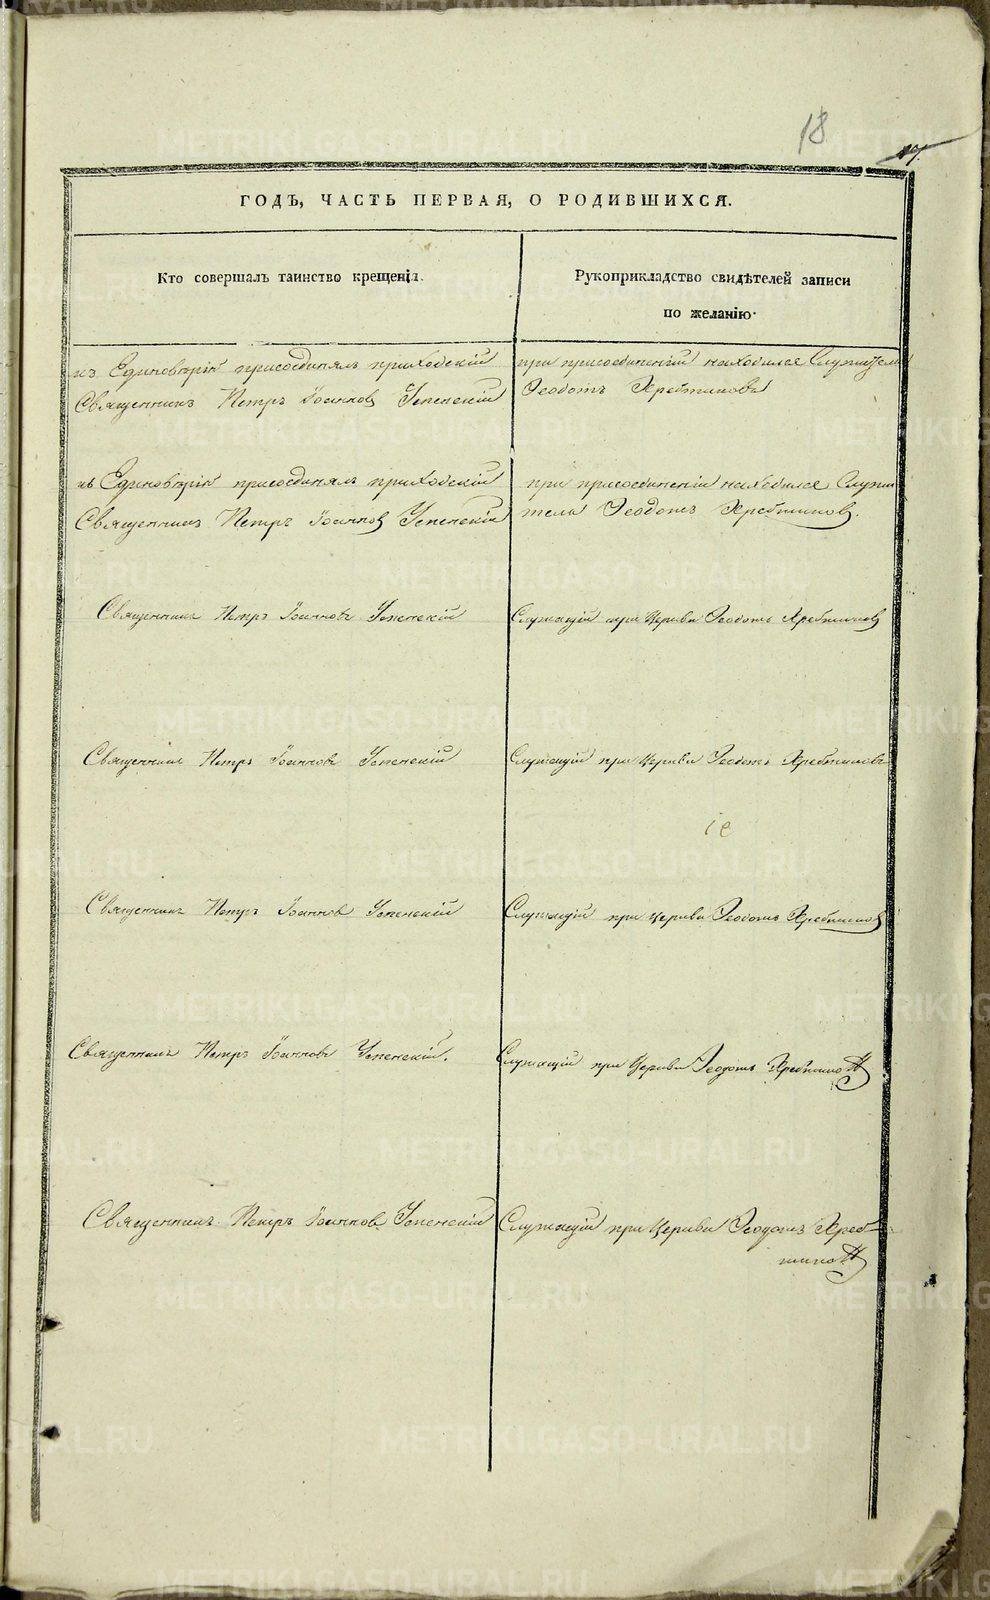 18
17.
ГОДЪ, ЧАСТЬ ПЕРВАЯ, О РОДИВШИХСЯ.
Кто совершалъ таинство крещенія.
Рукоприкладство свидѣтелей записи
по желанію.
къ Единовѣрію присоединялъ приходскій
Священникъ Петръ Іоанновъ Успенскій
при присоединеніи находился Служитель
Ѳеодотъ
къ Единовѣрію присоединялъ приходскій
Священникъ Петръ Іоанновъ Успенскій
при присоединеніи находился Служи
тель Ѳеодотъ
Священникъ Петръ Іоанновъ Успенскій
Служащій при Церкви Ѳеодотъ
Священникъ Петръ Іоанновъ Успенскій
Служащій при Церкви Ѳеодотъ
Священникъ Петръ Іоанновъ Успенскій
Служащій при Церкви Ѳеодотъ
Священникъ Петръ Іоанновъ Успенскій.
Служащій при Церкви Ѳеодотъ
Священникъ Петръ Іоанновъ Успенскій
Служащій при Церкви Ѳеодотъ
METRIKI.GASO-URAL.RU